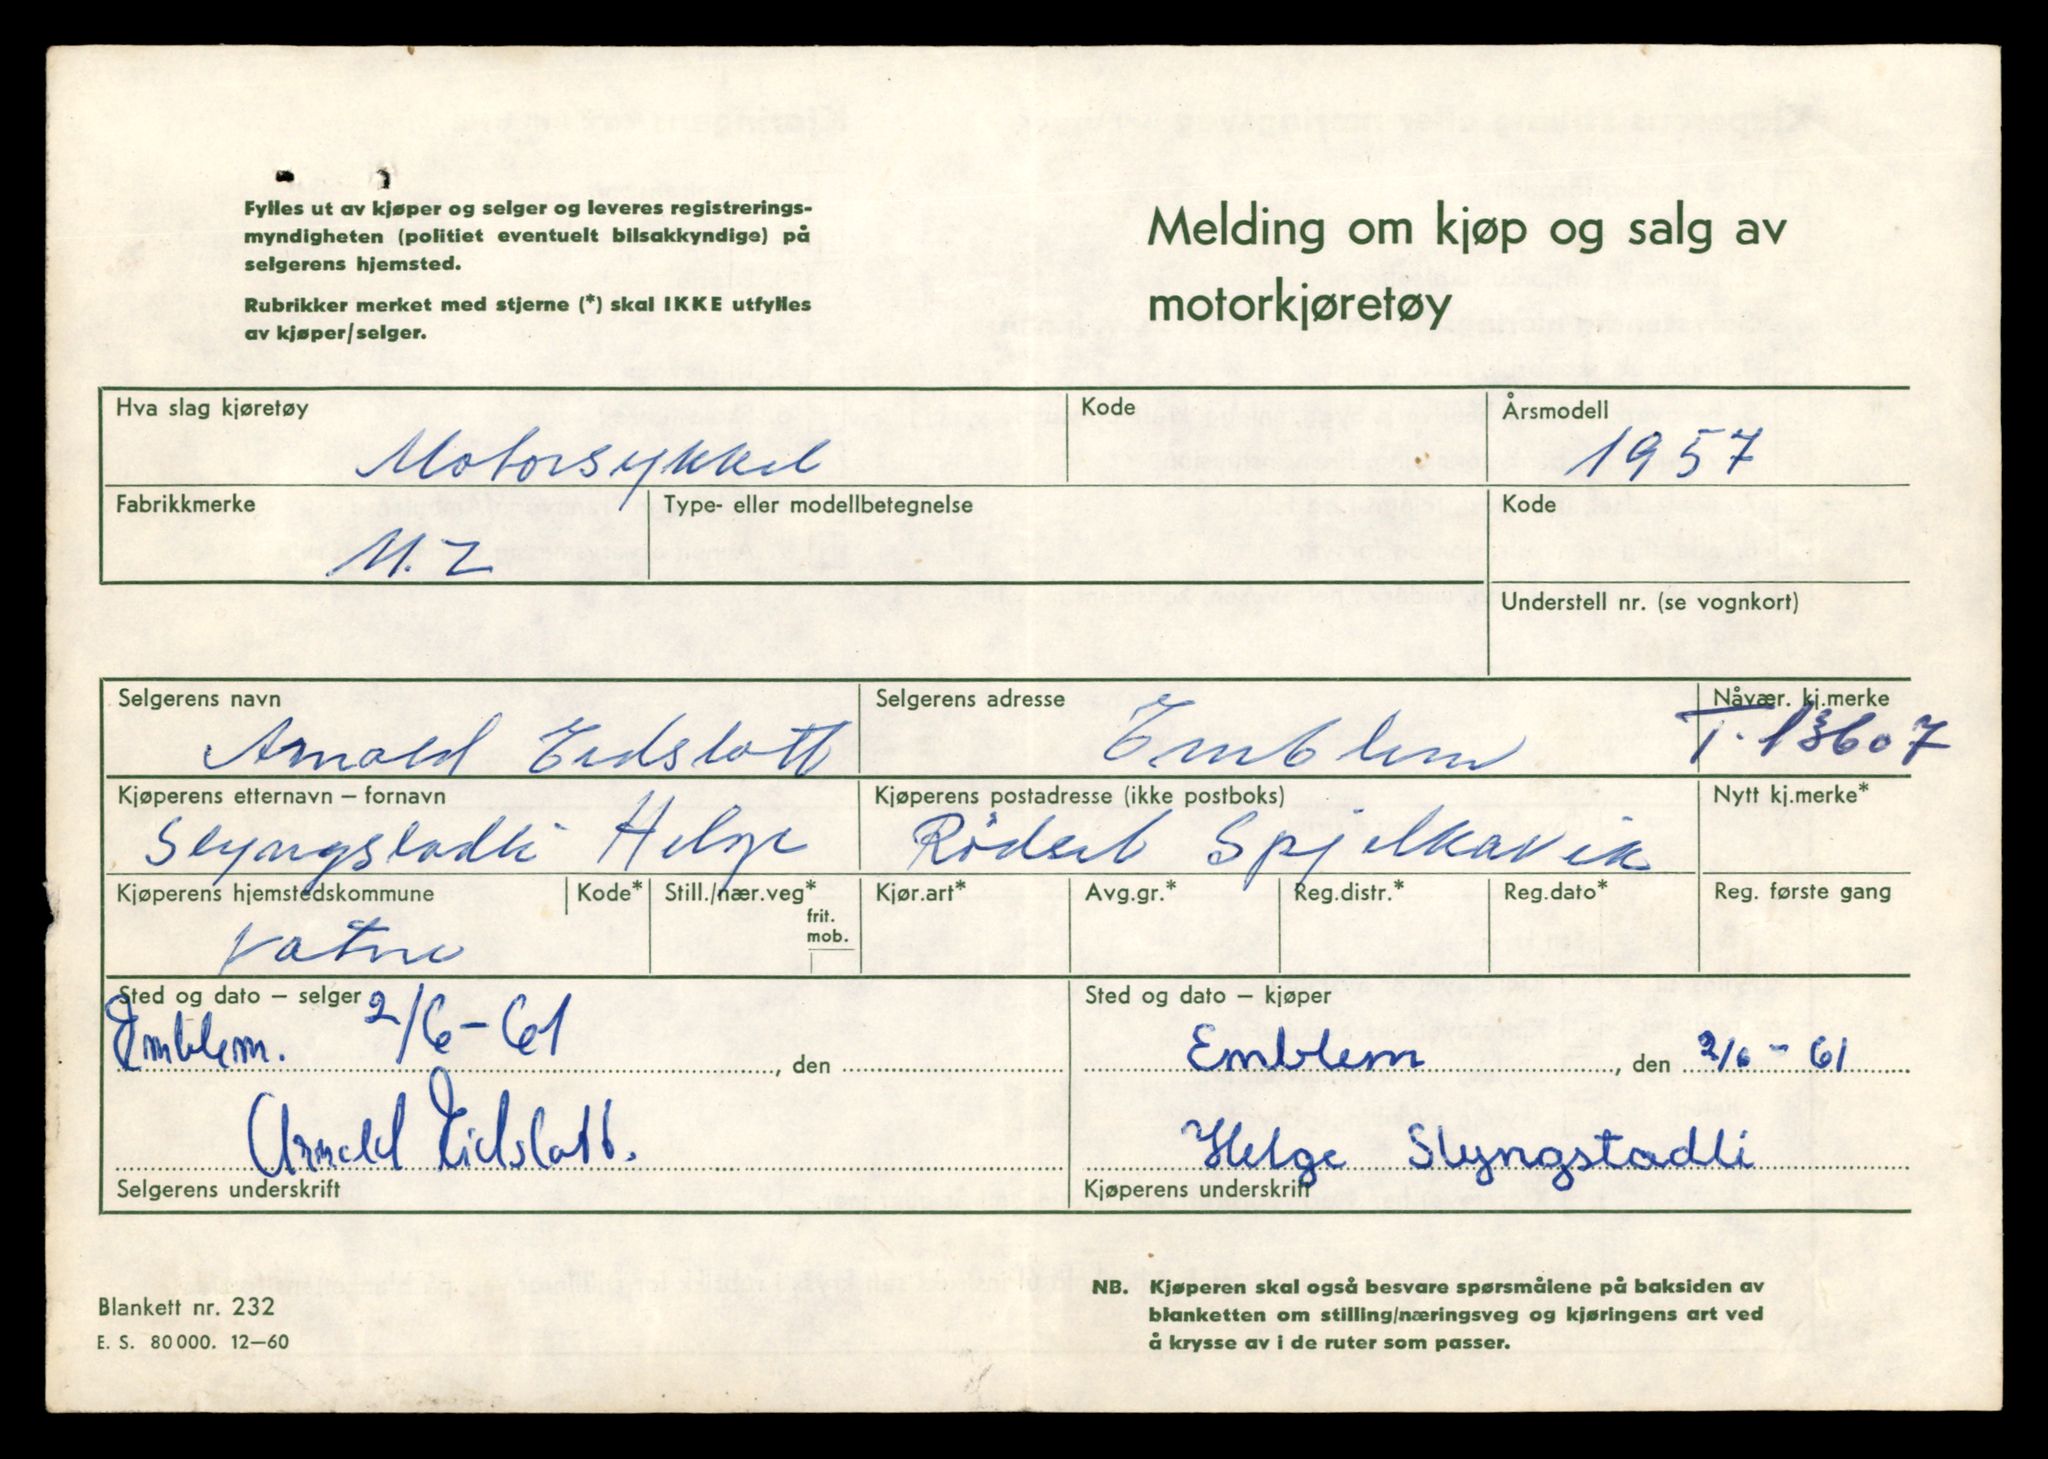 Fylles ut av kjøper og selger og leveres registrerings-
myndigheten (politiet eventuelt bilsakkyndige) på
selgerens hjemsted.
Rubrikker merket med stjerne (*) skal IKKE utfylles
av kjøper/selger.
Melding om kjøp og salg av
motorkjøretøy
Hva slag kjøretøy
Motorsykkel
Kode
Årsmodell
1957
Fabrikkmerke
M.Z
Type- eller modellbetegnelse
Kode
Understell nr. (se vognkort)
Selgerens navn
Arnold Eidslott
Selgerens adresse
Emblem
Nåvær. kj.merke
T-13607
Kjøperens etternavn – fornavn
Slyngstadli Helge
Kjøperens postadresse (ikke postboks)
Rødset Spjelkavik
Nytt kj.merke*
Kjøperens hjemstedskommune
Vatne
Kode*
Still./nær.veg*
frit.
mob.
Kjør.art*
Avg.gr.*
Reg.distr.*
Reg.dato*
Reg. første gang
Sted og dato – selger
Emblem. 2/6-61 , den
Arnold Eidslott.
Selgerens underskrift
Sted og dato – kjøper
Emblem , den 2/6 - 61
Helge Slyngstadli
Kjøperens underskrift
Blankett nr. 232
E. S. 80000. 12–60
NB. Kjøperen skal også besvare spørsmålene på baksiden av
blanketten om stilling/næringsveg og kjøringens art ved
å krysse av i de ruter som passer.